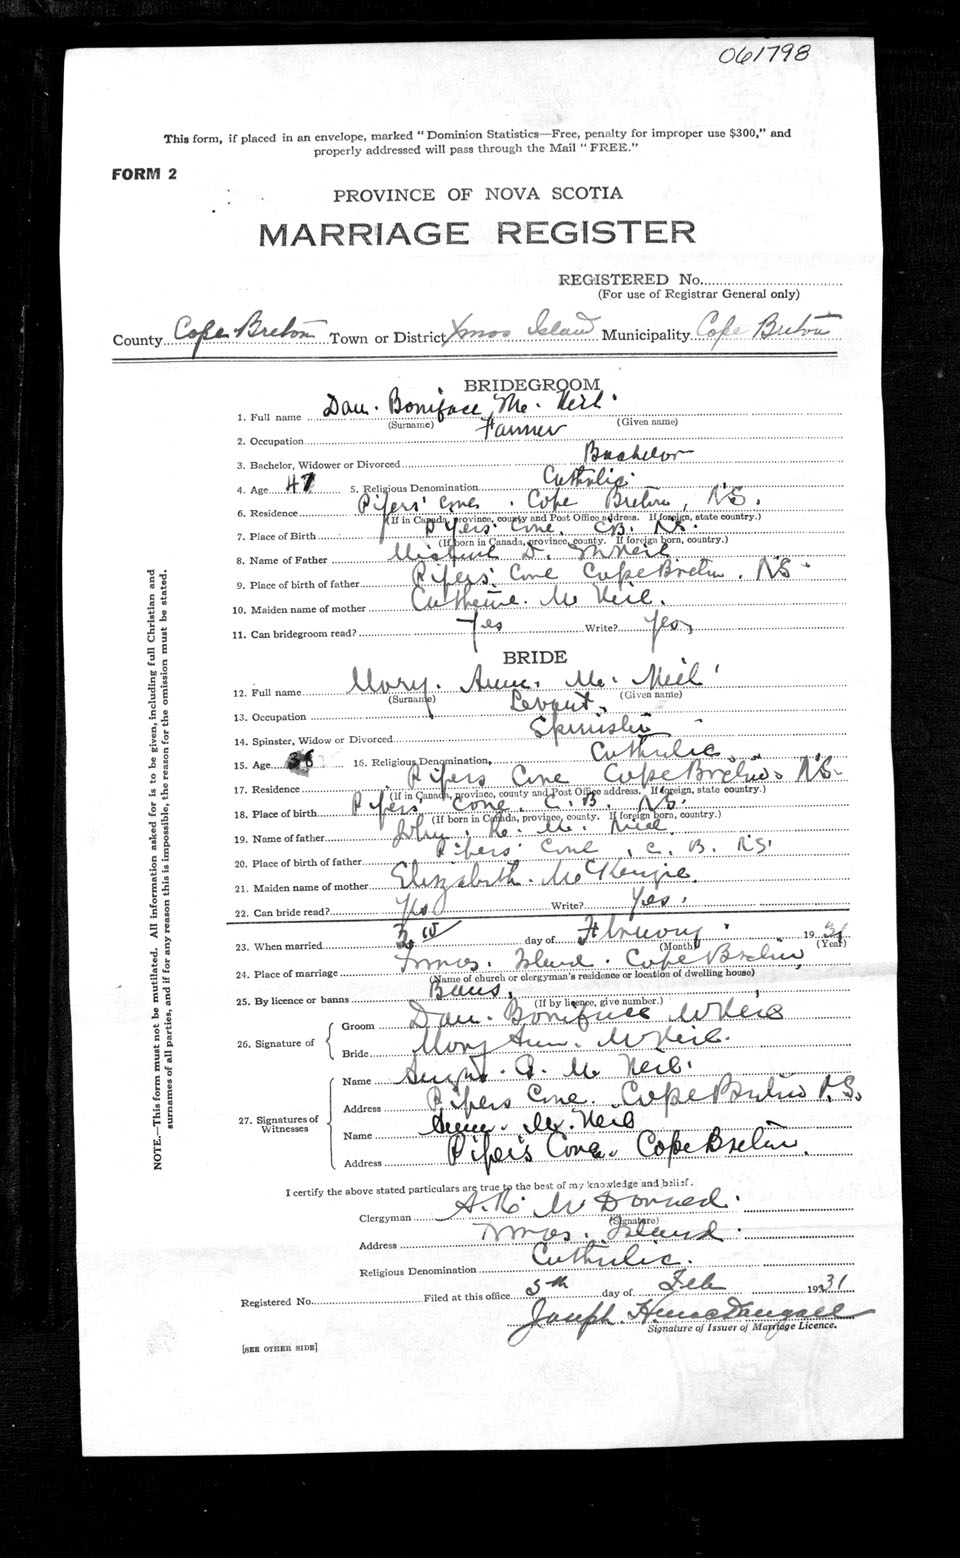 061798
This form, if placed in an envelope, marked "Dominion Statistics—Free, penalty for improper use $300," and
properly addressed will pass through the Mail "FREE."
FORM 2
PROVINCE OF NOVA SCOTIA
MARRIAGE REGISTER
REGISTERED No.
(For use of Registrar General only)
County Cape Breton Town or District Xmas Island Municipality Cape Breton
BRIDEGROOM
1. Full name Dan. Boniface Mc. Neil.
(Surname) (Given name)
2. Occupation Farmer
3. Bachelor, Widower or Divorced Bachelor
4. Age 47 5. Religious Denomination Catholic.
6. Residence Pipers' Cove. Cape Breton, N.S.
(If in Canada, province, county and Post Office address. If foreign, state country.)
7. Place of Birth Pipers' Cove. C.B. N.S.
(If born in Canada, province, county. If foreign born, country.)
8. Name of Father D. McNeil
9. Place of birth of father Pipers' Cove Cape Breton. N.S.
10. Maiden name of mother Catherine. Mc Neil.
11. Can bridegroom read? Yes Write? Yes,
BRIDE
12. Full name Mary. Ann. Mc. Neil
(Surname) (Given name)
13. Occupation
14. Spinster, Widow or Divorced Spinster
15. Age 36 16. Religious Denomination, Catholic
17. Residence Pipers Cove Cape Breton. N.S.
(If in Canada, province, county and Post Office address. If foreign, state country.)
18. Place of birth Pipers' Cove, C.B. N.S.
(If born in Canada, province, county. If foreign born, country.)
19. Name of father John. Mc. Neil
20. Place of birth of father Pipers' Cove, C. B. N.S.
21. Maiden name of mother Elizabeth. McKenzie.
22. Can bride read? Yes Write? Yes.
23. When married 3 day of February 1931
(Month) (Year)
24. Place of marriage Xmas. Island. Cape Breton,
(Name of church or clergyman's residence or location of dwelling house)
25. By licence or banns Bans,
(If by licence, give number.)
26. Signature of Groom Dan. Boniface McNeil
Bride Mary Ann. McNeil.
27. Signatures of Witnesses Name Mc Neil.
Address Pipers Cove. Cape Breton N.S.
Name Mc. Neil
Address Piper's Cove. Cape Breton.
I certify the above stated particulars are true to the best of my knowledge and belief.
Clergyman McDonnell.
(Signature)
Address Xmas. Island.
Religious Denomination Catholic.
Registered No. Filed at this office 5th day of Feb 1931
Joseph MacDougall
Signature of Issuer of Marriage Licence.
[SEE OTHER SIDE]
NOTE.—This form must not be mutilated. All information asked for is to be given, including full Christian and
surnames of all parties, and if for any reason this is impossible, the reason for the omission must be stated.